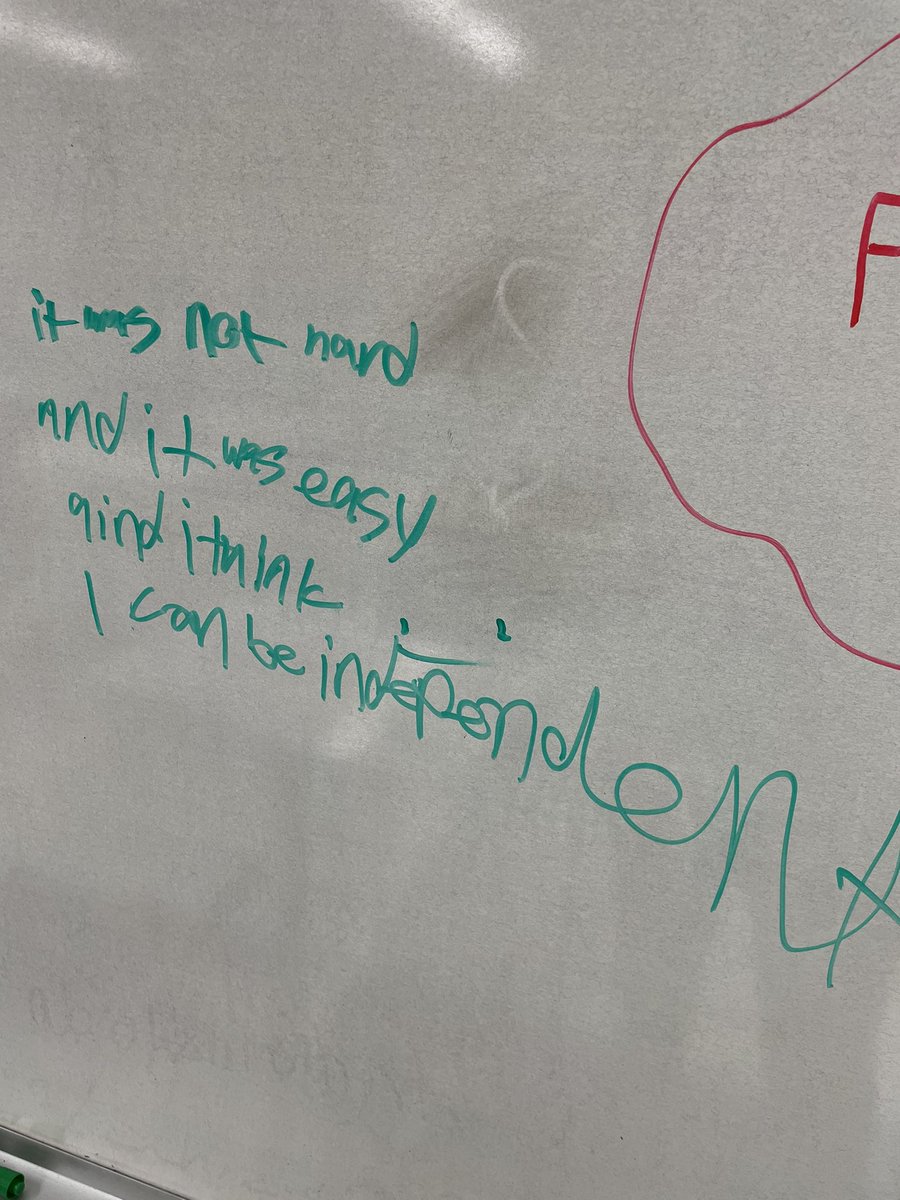 it was not hard
And it was easy
aind i think
I can be independent
F